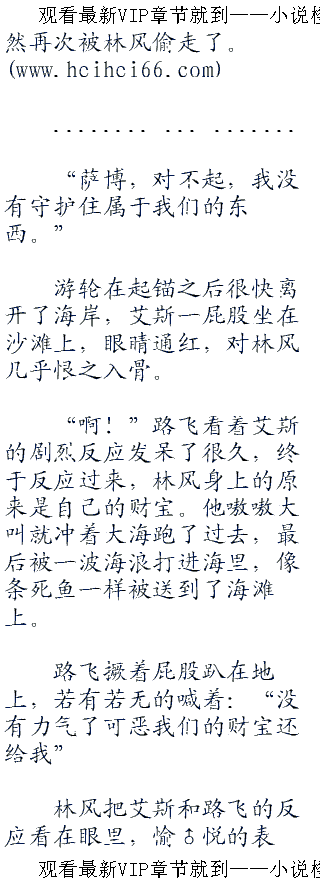 观看最新VIP章节就到——小说
然再次被林风偷走了。
(www.hcihci66.com)
........ ... .......
“萨博，对不起，我没
有守护住属于我们的东
西。”
游轮在起锚之后很快离
开了海岸，艾斯一屁股坐在
沙滩上，眼睛通红，对林风
几乎恨之入骨。
“啊！”路飞看着艾斯
的剧烈反应发呆了很久，终
于反应过来，林风身上的原
来是自己的财宝。他嗷嗷大
叫就冲着大海跑了过去，最
后被一波海浪打进海里，像
条死鱼一样被送到了海滩
上。
路飞撅着屁股趴在地
上，若有若无的喊着：“没
有力气了可恶我们的财宝还
给我”
林风把艾斯和路飞的反
应看在眼里，愉♂悦的表
观看最新VIP章节就到——小说